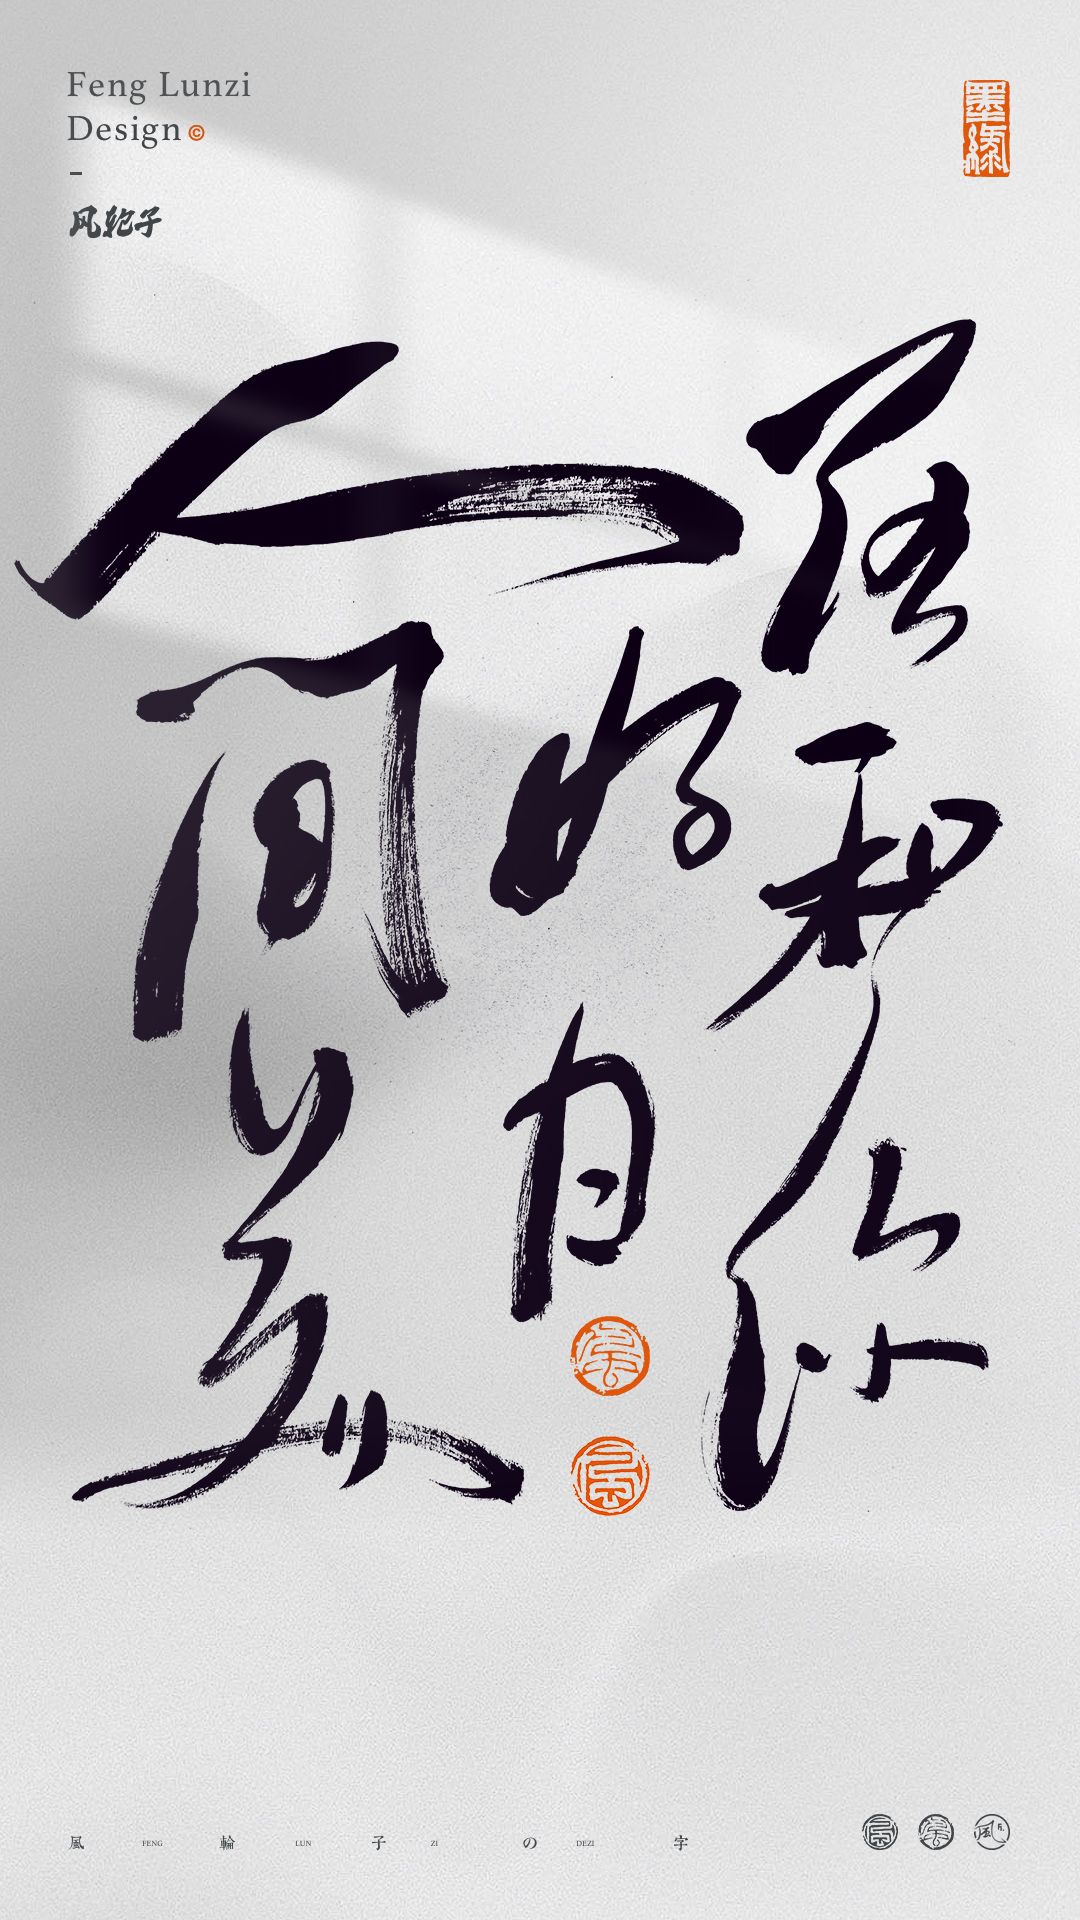 Feng Lunzi
Design©
风轮子
墨緣
人间美
好日
落和你
風 FENG 輪 LUN 子 ZI の DEZI 字